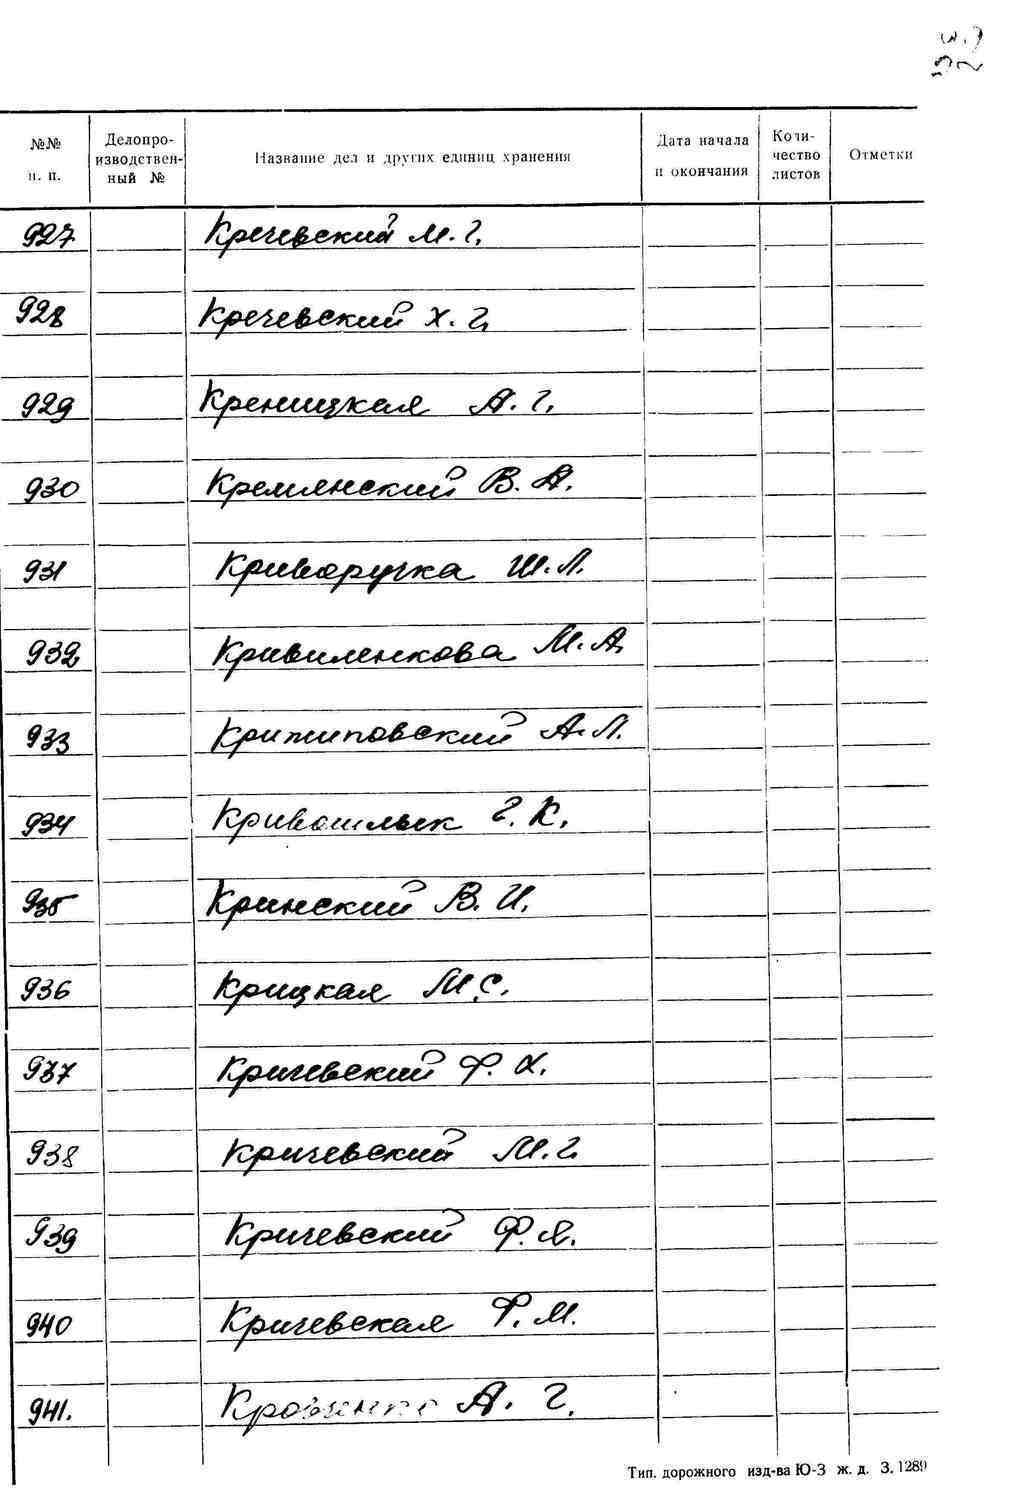 №№ п. п. Делопроизводственный № Название дел и других единиц хранения Дата начала и окончания Количество листов Отметки
927 Кречевский М. Г.
928 Кречевский Х. Г.
929 Креницкая А. Г.
930 Кремянский В. А.
931 Криворучка Ш. Л.
932 Кривиленкова М. А.
933 Крижиповский А. Л.
934 Кривошлык Г. К.
935 Кринский В. И.
936 Крицкая М. С.
937 Кричевский Ф. Х.
938 Кричевский М. Г.
939 Кричевский Ф. Я.
940 Кричевская Ф. М.
941. А. Г.
Тип. дорожного изд-ва Ю-З ж. д. З. 1289